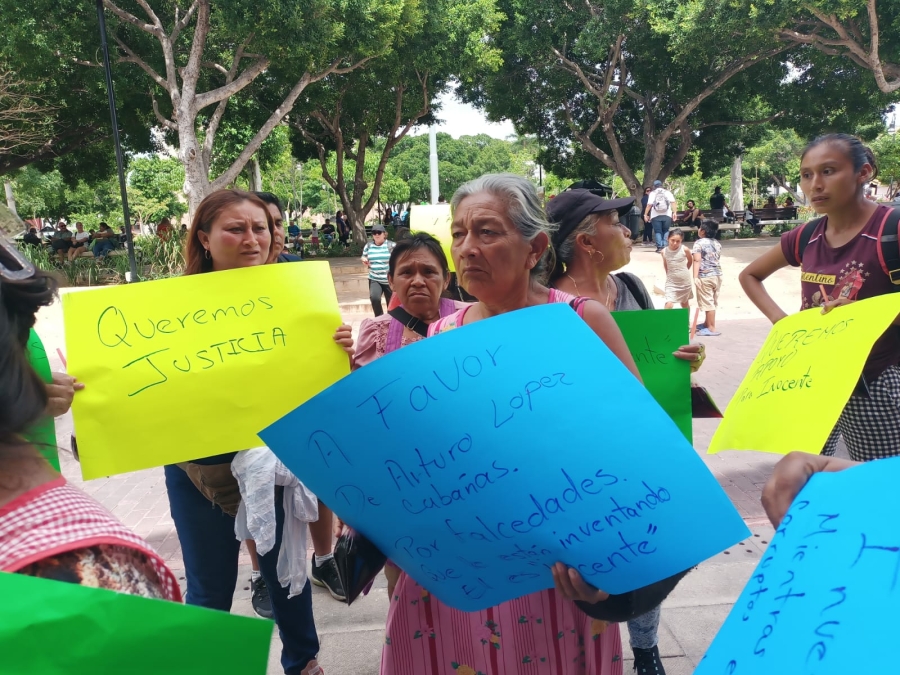 Queremos
JUSTICIA
A Favor
De Arturo Lopez
Cabañas.
Por falcedades.
que le estan inventando
El es inocente"
ente"
APOYO
Para Inocente
Inve
Mientras
corruptos